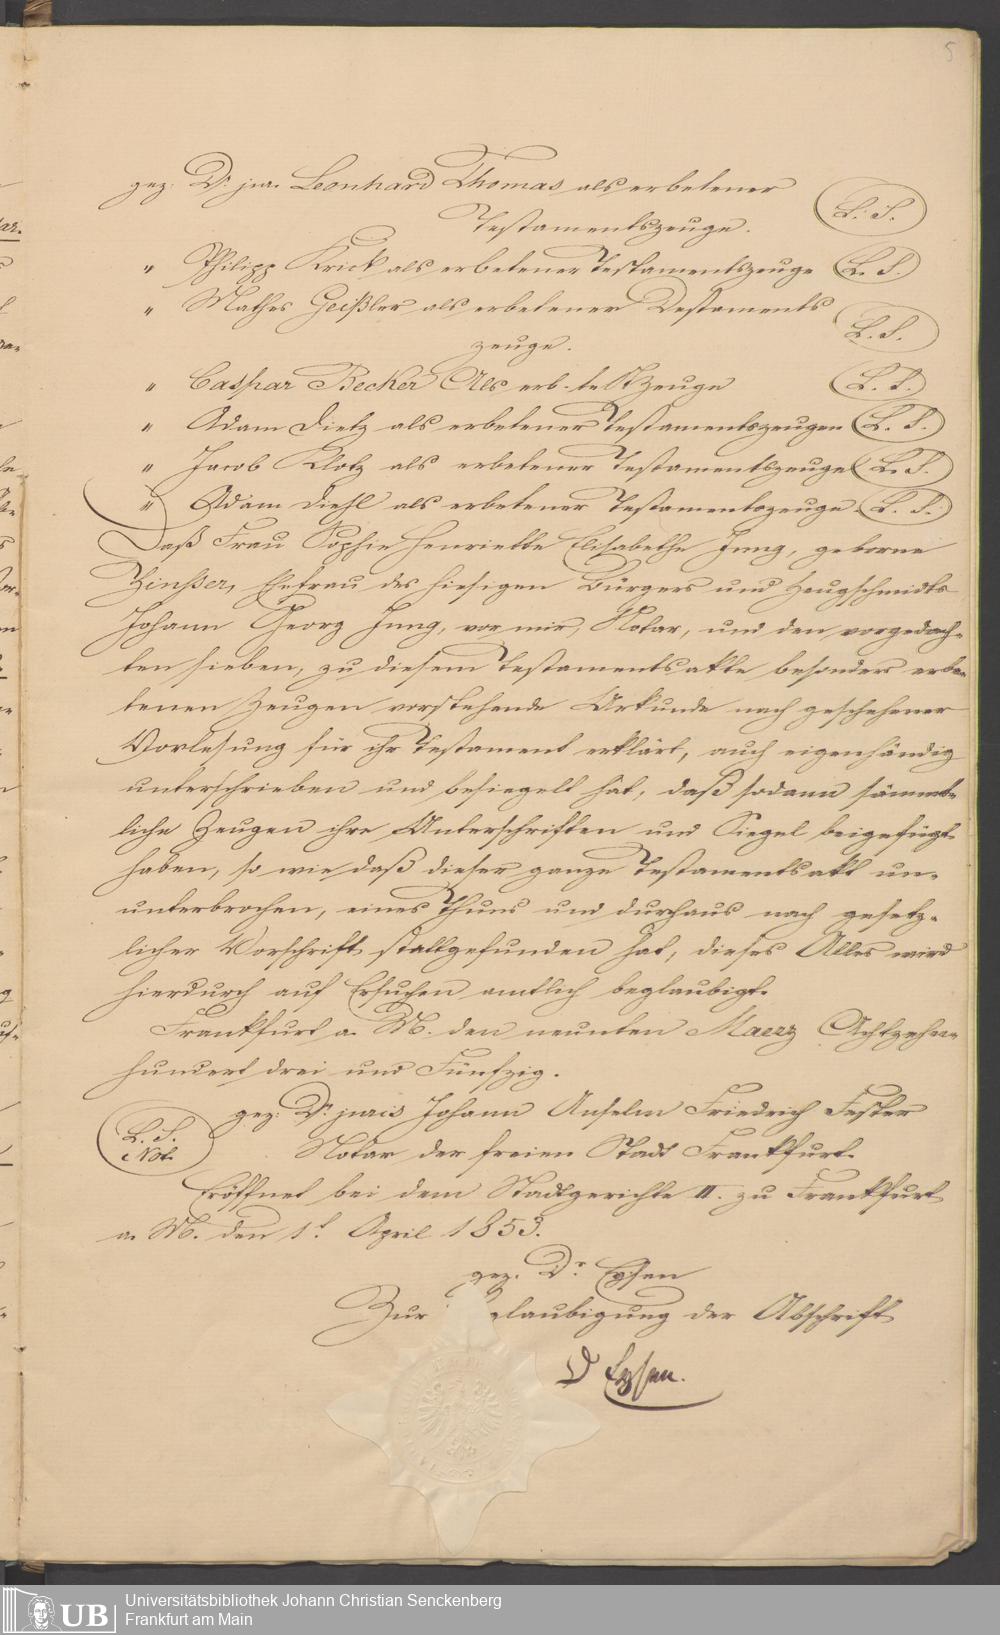 5
gez: Dr. jur. Leonhard Thomas als erbetener
Testamentszeuge. L. S.
" Philipp Krick als erbetener Testamentszeuge L. S.
" Mathes Geißler als erbetener Testaments
zeuge. L. S.
" Caspar Becker Als erb. te Zeuge L. S.
" Adam Dietz als erbetener Testamentszeugen L. S.
" Jacob Klotz als erbetener Testamentszeuge L. S.
" Adam Diehl als erbetener Testamentszeuge. L. S.
Daß Frau Sophie Henriette Elisabethe Jung, geborne
Zinßer, Ehefrau des hiesigen Bürgers und Zeugschmidts
Johann Georg Jung, vor mir, Notar, und den vorgedach-
ten sieben, zu diesem Testamentsakte besonders erbe-
tenen Zeugen vorstehende Urkunde nach geschehener
Vorlesung für ihr Testament erklärt, auch eigenhändig
unterschrieben und besiegelt hat, daß sodann sämmt-
liche Zeugen ihre Unterschriften und Siegel beigefügt
haben, so wie daß dieser ganze Testamentsakt un-
unterbrochen, eines Thuns und durchaus nach gesetz-
licher Vorschrift stattgefunden hat, dieses Alles wird
hierdurch auf Ersuchen amtlich beglaubigt.
Frankfurt a. M. den neunten Maerz Achtzehn-
hundert drei und Fünfzig.
gez: Dr. juris Johann Anselm Friedrich Fester
L. S. Not. Notar der freien Stadt Frankfurt.
Eröffnet bei dem Stadtgerichte II. zu Frankfurt
a. M. den 1t. April 1853.
gez. Dr. Eysen
Zur Beglaubigung der Abschrift
D Eysen.
UB
Universitätsbibliothek Johann Christian Senckenberg
Frankfurt am Main